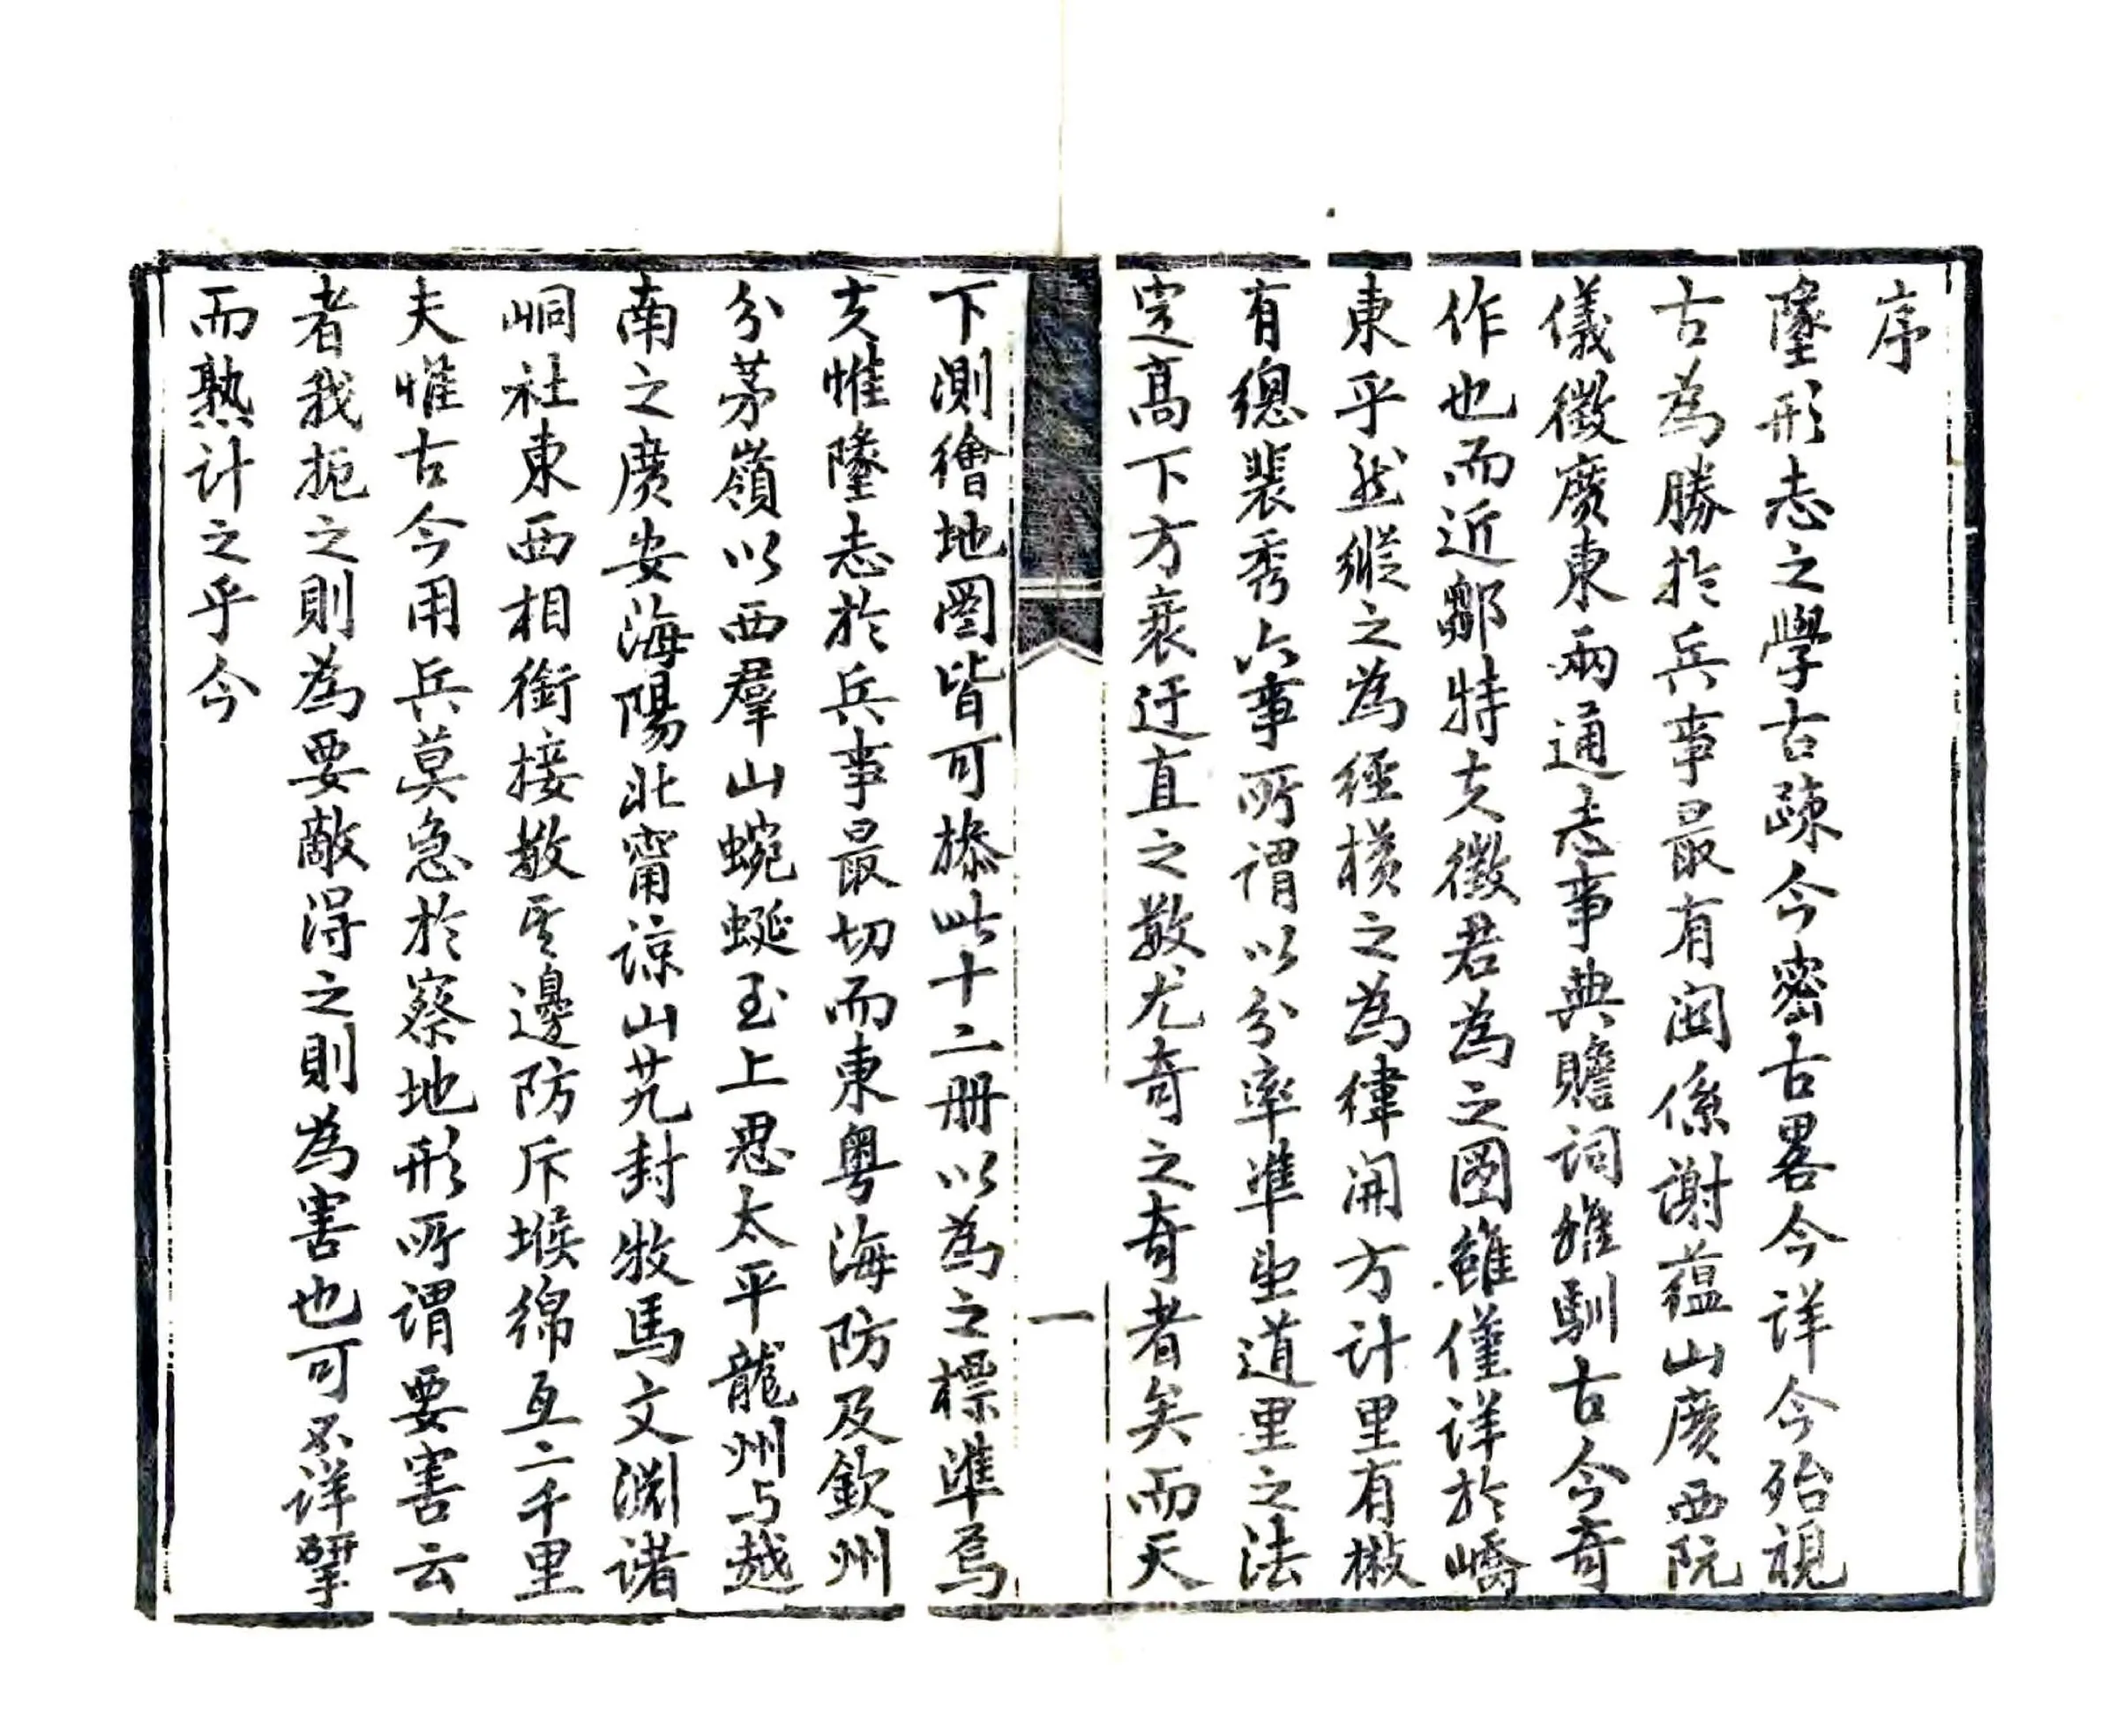 序
墬形志之學古疎今密古畧今詳今殆視
古為勝於兵事最有関係謝蘊山廣西阮
儀徵廣東兩通志事典贍詞雅馴古今奇
作也而近鄒特夫徵君為之圖雖僅詳於嶠
東乎然縱之為經橫之為緯開方計里有檄
有總裴秀六事所謂以分率準望道里之法
定高下方衺迂直之數尤奇之奇者矣而天
一
下測繪地圖皆可據此十二冊以為之標準焉
夫惟墬志於兵事最切而東粵海防及欽州
分茅嶺以西羣山蜿蜒至上思太平龍州与越
南之廣安海陽北甯諒山芁封牧馬文淵諸
峒社東西相銜接數其邊防斥堠綿亙二千里
夫惟古今用兵莫急於察地形所謂要害云
者我扼之則為要敵得之則為害也可不详揅
而熟计之乎今